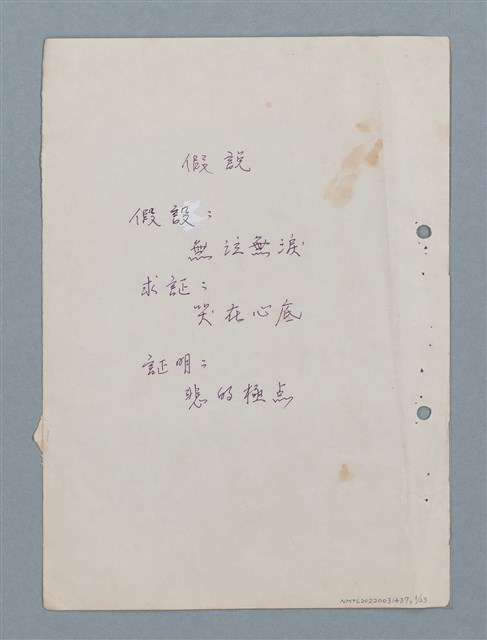 假說
假設：
無泣無淚
求証：
哭在心底
証明：
悲的極点
NMTL20220031437